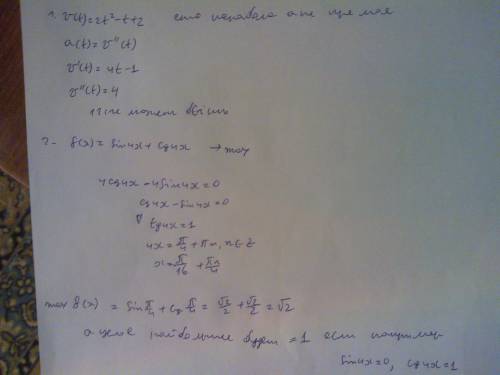 1. v(t)=2t²-t+2 это парабола а не прямая
a(t)=v''(t)
v'(t)=4t-1
v''(t)=4
не может быть
2- f(x)=sin4x+cos4x → max
4cos4x-4sin4x=0
cos4x-sin4x=0
tg4x=1
4x=π/4+πn, n∈Z
x=π/16+πn/4
max f(x)=sin π/4+cos π/4=√2/2+√2/2=√2
а целое наибольшее будет =1 если например
sin4x=0, cos4x=1